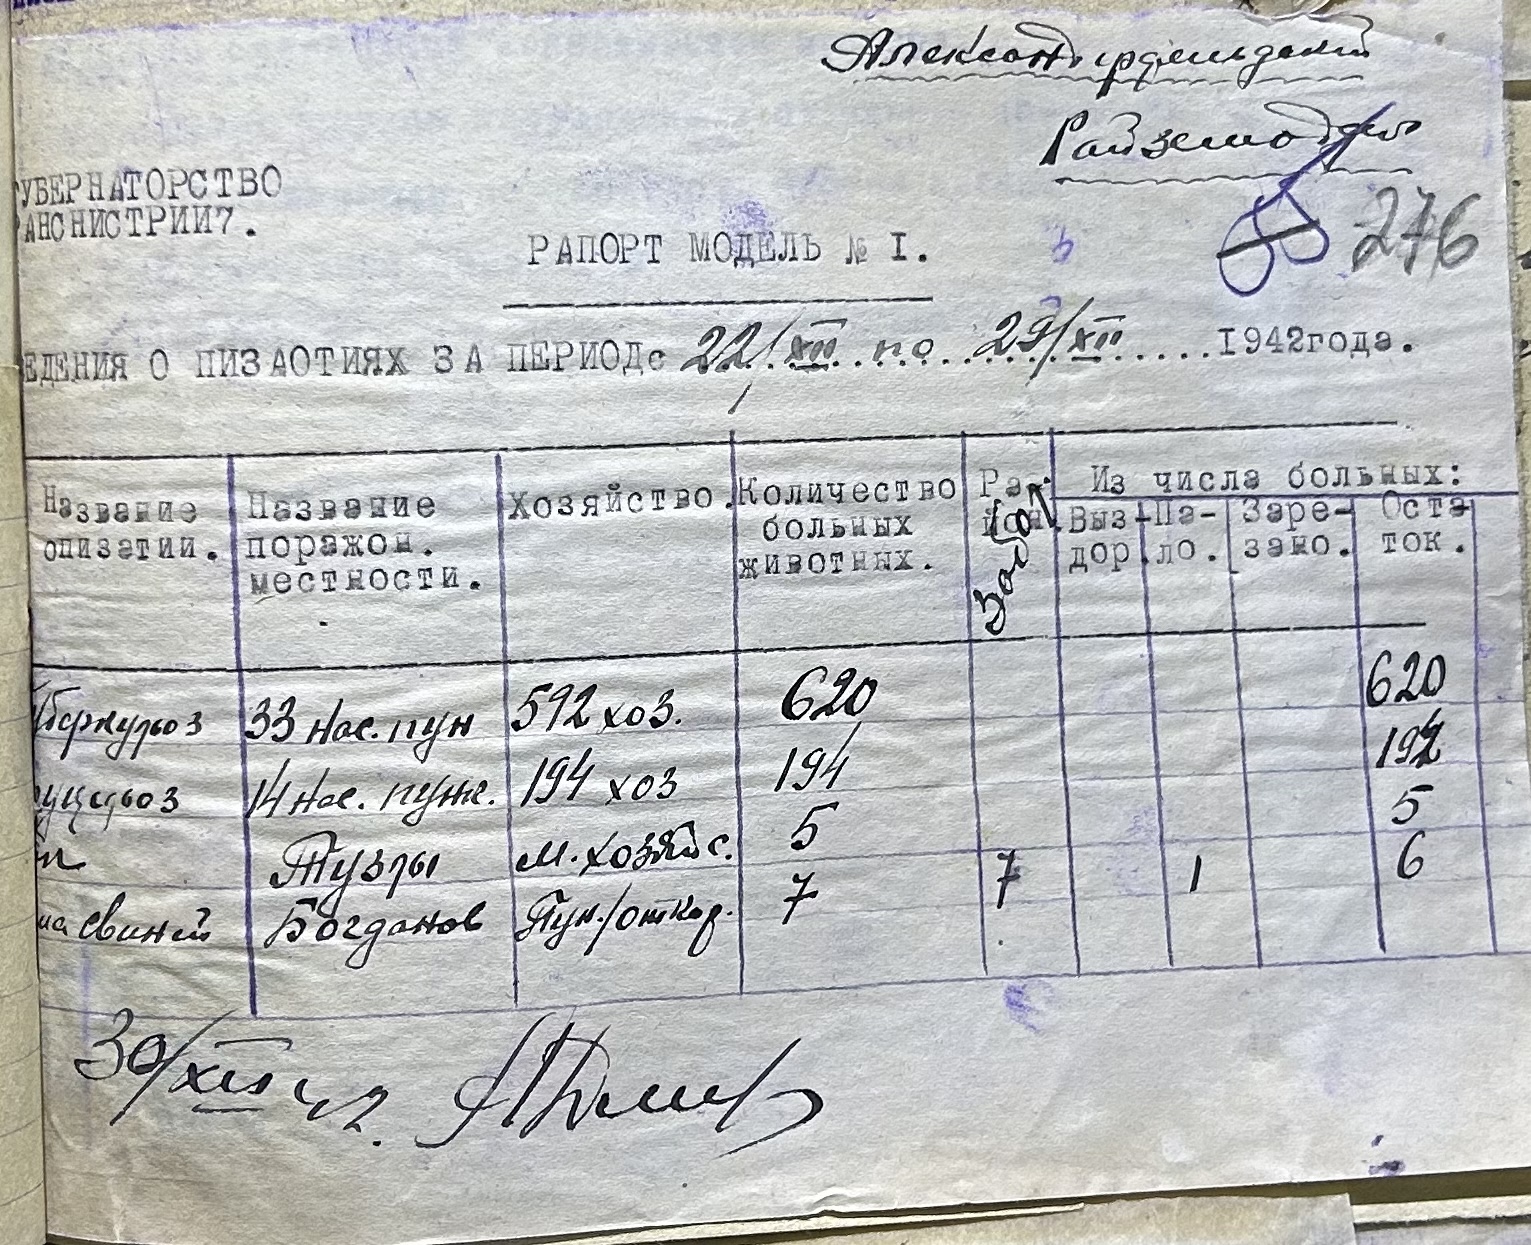 Александрфельдский
Райземотдел
276
ГУБЕРНАТОРСТВО
РАНСНИСТРИИ7.
РАПОРТ МОДЕЛЬ № I.
ЕДЕНИЯ О ПИЗАОТИЯХ ЗА ПЕРИОДс 22/XII по 29/XII 1942года.
Название опизатии. Название поражон. местности. Хозяйство. Количество больных животных. Заболе Из числа больных: Выз-дор. Па-ло. Заре-зано. Оста-ток.
уберкульоз 33 нас. пун 592 хоз. 620 620
руцельоз 14 нас. пунк. 194 хоз 194 192
Тузлы м. хозяйс. 5 5
ма свиней Богданов Пун./откор. 7 7 1 6
30/XII 42.